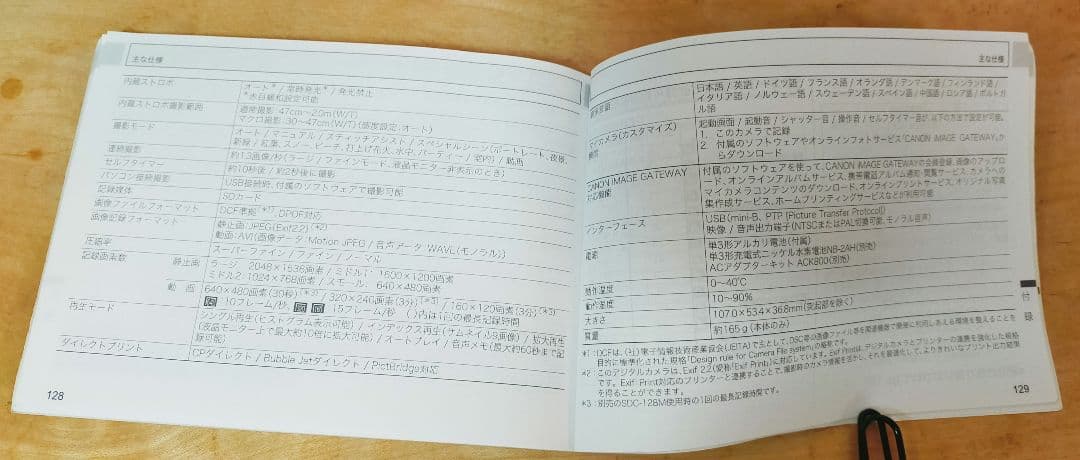 主な仕様
内蔵ストロボ
オート* / 常時発光* / 発光禁止
*赤目緩和設定可能
内蔵ストロボ撮影範囲
通常撮影:47cm〜2.0m(W/T)
マクロ撮影:30〜47cm(W/T)(感度設定:オート)
撮影モード
オート / マニュアル / スティッチアシスト / スペシャルシーン(ポートレート、夜景、
新緑 / 紅葉、スノー、ビーチ、打上げ花火、水中、パーティー / 室内) / 動画
連続撮影
約1.3画像/秒(ラージ / ファインモード、液晶モニター非表示のとき)
セルフタイマー
約10秒後 / 約2秒後に撮影
パソコン接続撮影
USB接続時、付属のソフトウェアで撮影可能
記録媒体
SDカード
画像ファイルフォーマット
DCF準拠(*1)、DPOF対応
画像記録フォーマット
静止画:JPEG(Exif2.2)(*2)
動画:AVI(画像データ:Motion JPEG / 音声データ:WAVE(モノラル))
圧縮率
スーパーファイン / ファイン / ノーマル
記録画素数 静止画
ラージ:2048×1536画素 / ミドル1:1600×1200画素
ミドル2:1024×768画素 / スモール:640×480画素
動 画
640×480画素(30秒)(*3) / 320×240画素(3分)(*3) / 160×120画素(3分)(*3)
10フレーム/秒、 15フレーム/秒 ( )内は1回の最長記録時間
再生モード
シングル再生(ヒストグラム表示可能) / インデックス再生(サムネイル9画像) / 拡大再生
(液晶モニター上で最大約10倍に拡大可能) / オートプレイ / 音声メモ(最大約60秒まで記
ダイレクトプリント
CPダイレクト / Bubble Jetダイレクト / PictBridge対応
128
主な仕様
表示言語
日本語 / 英語 / ドイツ語 / フランス語 / オランダ語 / デンマーク語 / フィンランド語 /
イタリア語 / ノルウェー語 / スウェーデン語 / スペイン語 / 中国語 / ロシア語 / ポルトガ
ル語
マイカメラ(カスタマイズ)
機能
起動画面 / 起動音 / シャッター音 / 操作音 / セルフタイマー音が、以下の方法で設定が可能。
1. このカメラで記録
2. 付属のソフトウェアやオンラインフォトサービス「CANON iMAGE GATEWAY」か
らダウンロード
CANON iMAGE GATEWAY
対応機能
付属のソフトウェアを使って、CANON iMAGE GATEWAYの会員登録、画像のアップロ
ード、オンラインアルバムサービス、携帯電話アルバム通知・閲覧サービス、カメラへの
マイカメラコンテンツのダウンロード、オンラインプリントサービス、オリジナル写真
集作成サービス、ホームプリンティングサービスなどが利用可能
インターフェース
USB(mini-B、PTP [Picture Transfer Protocol])
映像 / 音声出力端子(NTSCまたはPAL切換可能、モノラル音声)
電源
単3形アルカリ電池(付属)
単3形充電式ニッケル水素電池NB-2AH(別売)
ACアダプターキット ACK800(別売)
動作温度
0〜40℃
動作湿度
10〜90%
大きさ
107.0×53.4×36.8mm(突起部を除く)
質量
約165g(本体のみ)
付
録
*1:DCFは、(社)電子情報技術産業協会(JEITA)で主として、DSC等の画像ファイル等を関連機器で簡便に利用しあえる環境を整えることを
目的に標準化された規格「Design rule for Camera File system」の略称です。
*2:このデジタルカメラは、Exif 2.2(愛称「Exif Print」)に対応しています。Exif Printは、デジタルカメラとプリンターの連携を強化した規格
です。Exif Print対応のプリンターと連携することで、撮影時のカメラ情報を活かし、それを最適化して、よりきれいなプリント出力結果
を得ることができます。
*3:別売のSDC-128M使用時の1回の最長記録時間です。
129